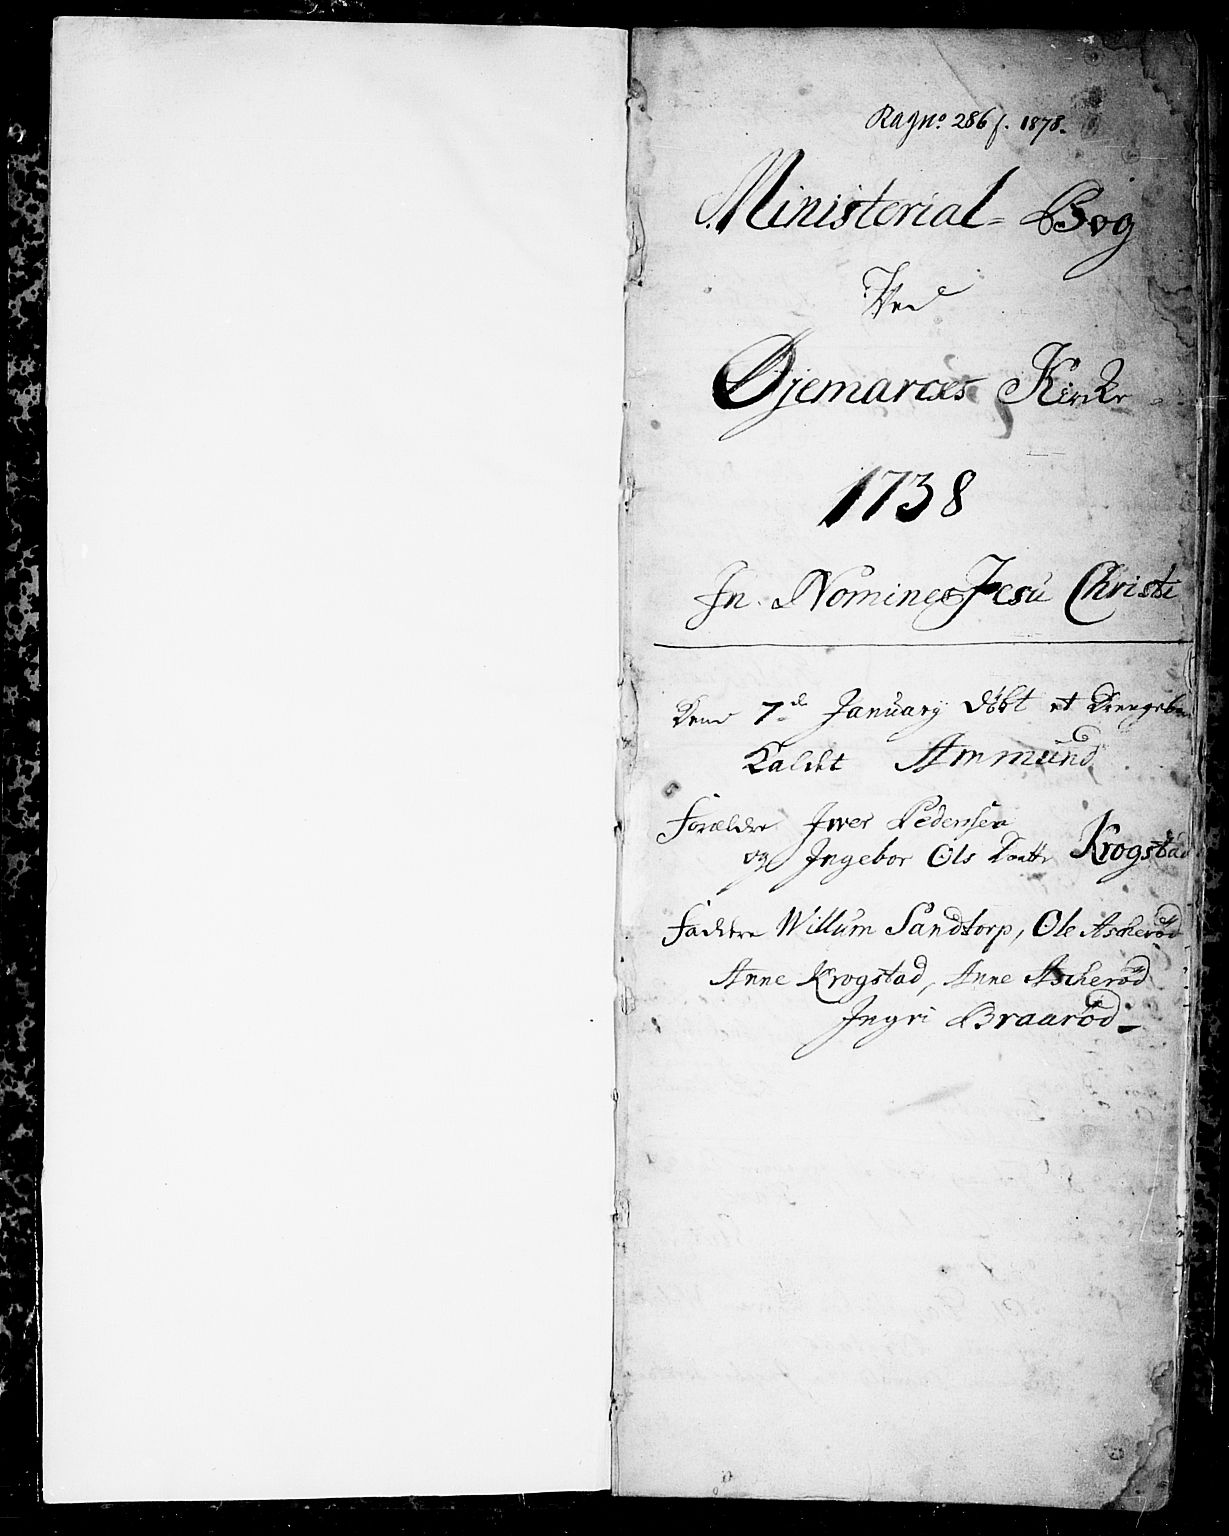 Ragno. 286 f. 1878.
Ministerial- Bog
Ved
Øjemarcks Kircke
1738
In. Nomine Jesu Christi
Dend 7de January døbt et Drengebarn
Kaldet Ammund
Forældre Iver Pedersen
og Ingebor Ols Daatter Krogstad
Faddere Willum Sandtorp, Ole Ascherød
Anne Krogstad, Anne Ascherød
Ingri Braarød